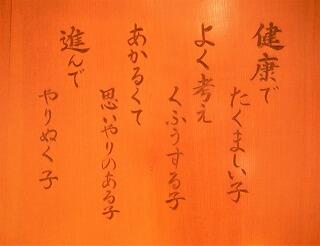 健康で
たくましい子
よく考え
くふうする子
あかるくて
思いやりのある子
進んで
やりぬく子